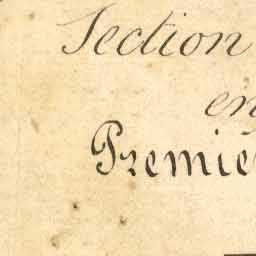 Section
en
Premie